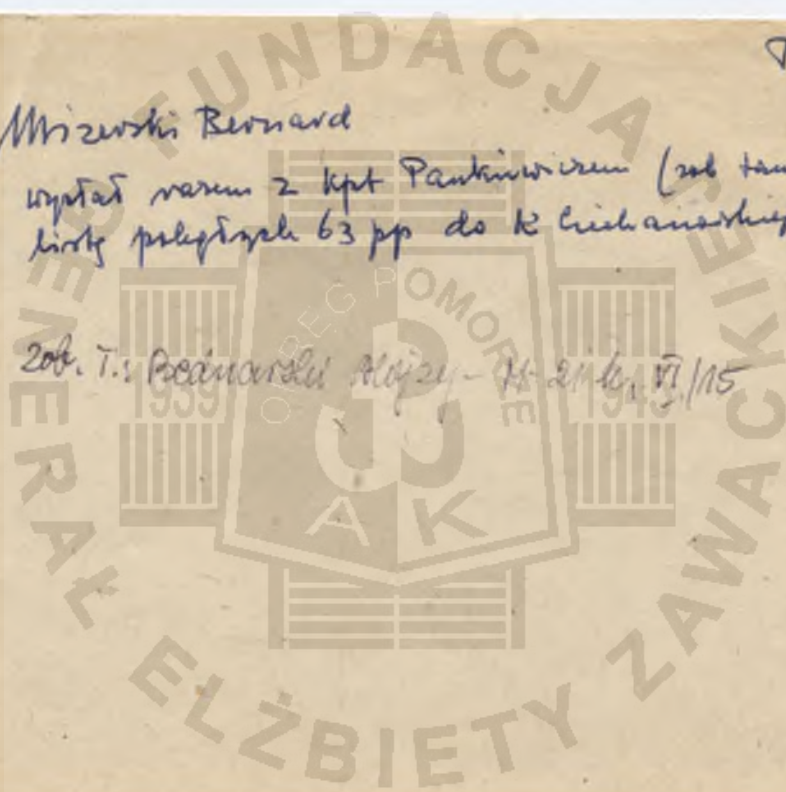 Mizerski Bernard
wysłał razem z kpt Pankiewiczem (zob tam
listę poległych 63 pp do K Ciechanowskiej
Zob. T.: Bednarski Alojzy - M- 21 k. VI/15
FUNDACJA
GENERAŁ ELŻBIETY ZAWACKIEJ
OKRĘG POMORZE
1939 1945
AK